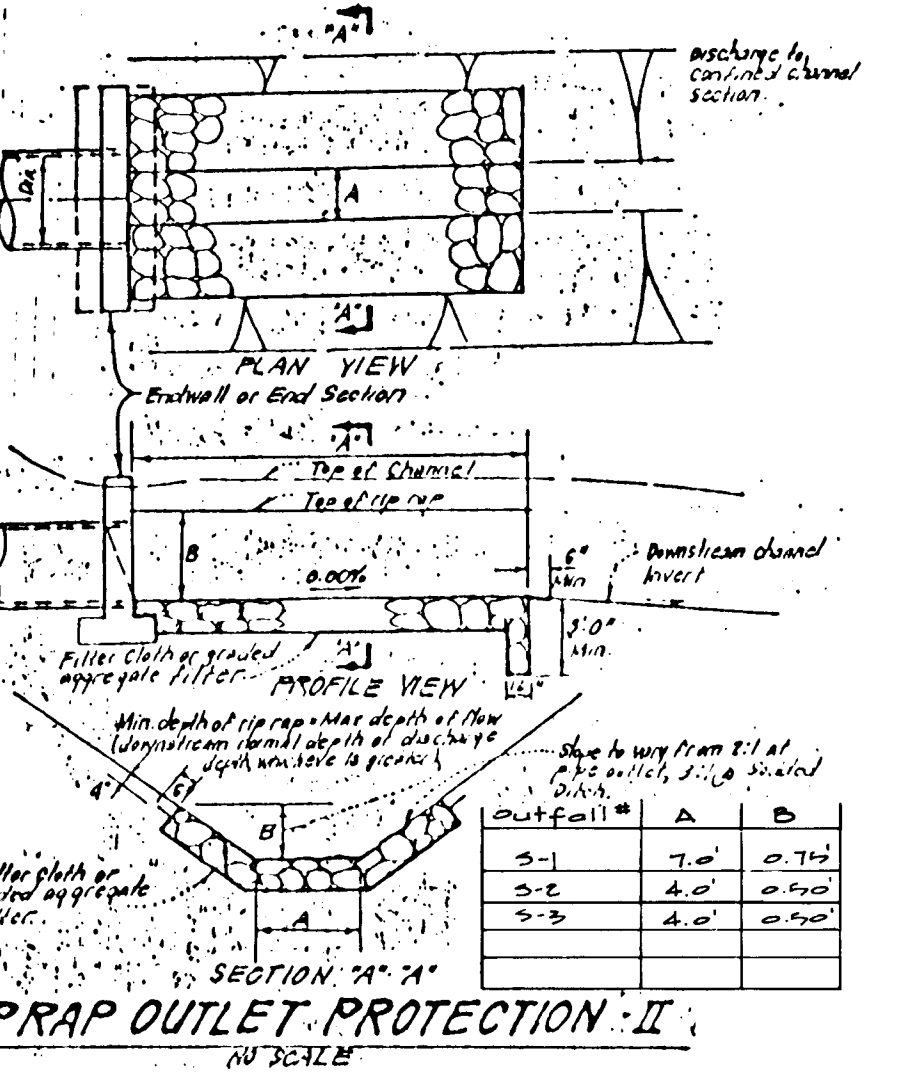 "A"
Discharge to
confined channel
section.
Dia
A
"A"
PLAN VIEW
Endwall or End Section
"A"
Top of Channel
Top of rip rap
B
0.00%
6"
Min
Downstream channel
Invert
3'-0"
Min.
Filter Cloth or graded
aggregate filter
"A"
PROFILE VIEW
Min. depth of rip rap = Max depth of flow
(downstream normal depth or discharge
depth whichever is greater)
Slope to vary from 2:1 at
pipe outlet,
Ditch.
4"
6"
B
cloth or
aggregate
A
SECTION "A"-"A"
Outfall # A B
S-1 7.0' 0.75'
S-2 4.0' 0.50'
S-3 4.0' 0.50'
PRAP OUTLET PROTECTION - II
NO SCALE